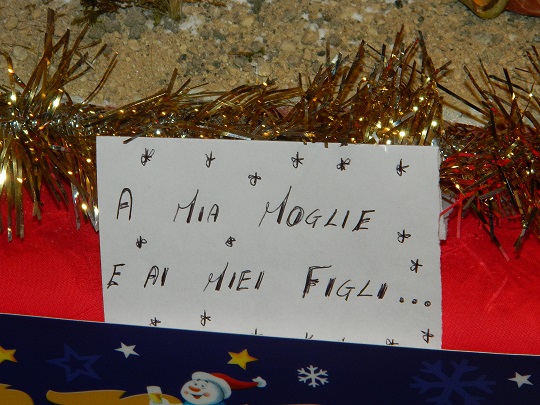 A MIA MOGLIE
E AI MIEI FIGLI...